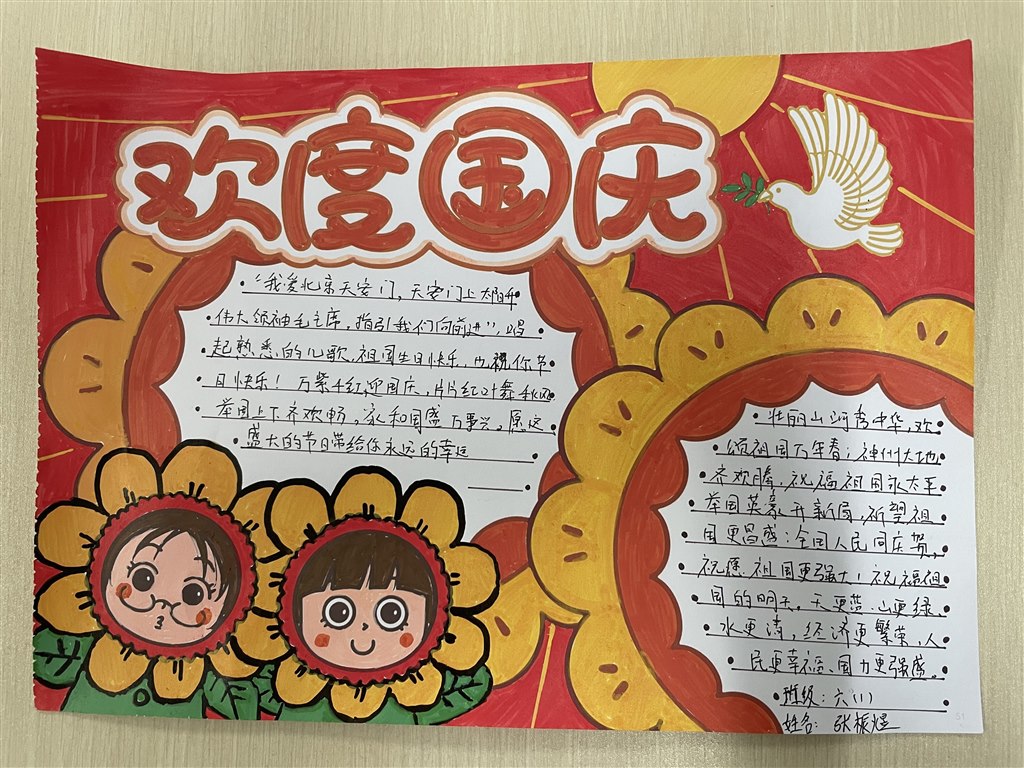 欢度国庆
"我爱北京天安门,天安门上太阳升
伟大领袖毛主席,指引我们向前进",唱
起熟悉的儿歌,祖国生日快乐,也祝你节
日快乐!万紫千红迎国庆,片片红叶舞秋
举国上下齐欢畅,家和国盛万事兴,愿这
盛大的节日带给你永远的幸运
壮丽山河秀中华,欢
颂祖国万年春;神州大地
齐欢腾,祝福祖国永太平
举国英豪开新局,祈望祖
国更昌盛;全国人民同庆贺,
祝愿祖国更强大!祝福祖
国的明天,天更蓝、山更绿、
水更清,经济更繁荣、人
民更幸福、国力更强盛。
班级:六(1)
姓名:张振煜
51